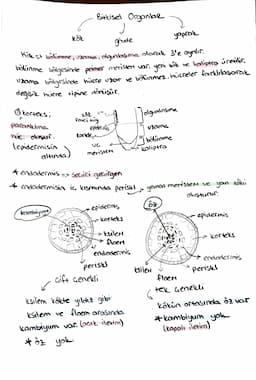 Bitkisel Organlar
kök gövde yaprak
Kök => bölünme, uzama, olgunlaşma olarak 3'e ayrılır.
Bölünme bölgesinde primer meristem var. yeni kök ve kaliptra üretilir.
uzama bölgesinde hücre uzar ve bölünmez. hücreler farklılaşarak
değişik hücre tipine dönüşür.
korteks;
parankima
(epidermisin
altında)
kök
emici tüy
korteks
uç
meristem
olgunlaşma
uzama
bölünme
kaliptra
* endodermis => seçici geçirgen
* endodermisin iç kısmında perisikl → yanal meristem ve yan kökü
oluşturur.
kambiyum
epidermis
korteks
ksilem
floem
endodermis
perisikl
çift çenekli
ksilem kökte yıldız gibi
ksilem ve floem arasında
kambiyum var. (açık iletim)
* öz yok
öz
epidermis
korteks
endodermis
perisikl
ksilem
floem
tek çenekli
kökün ortasında öz var
* kambiyum yok
(kapalı iletim)